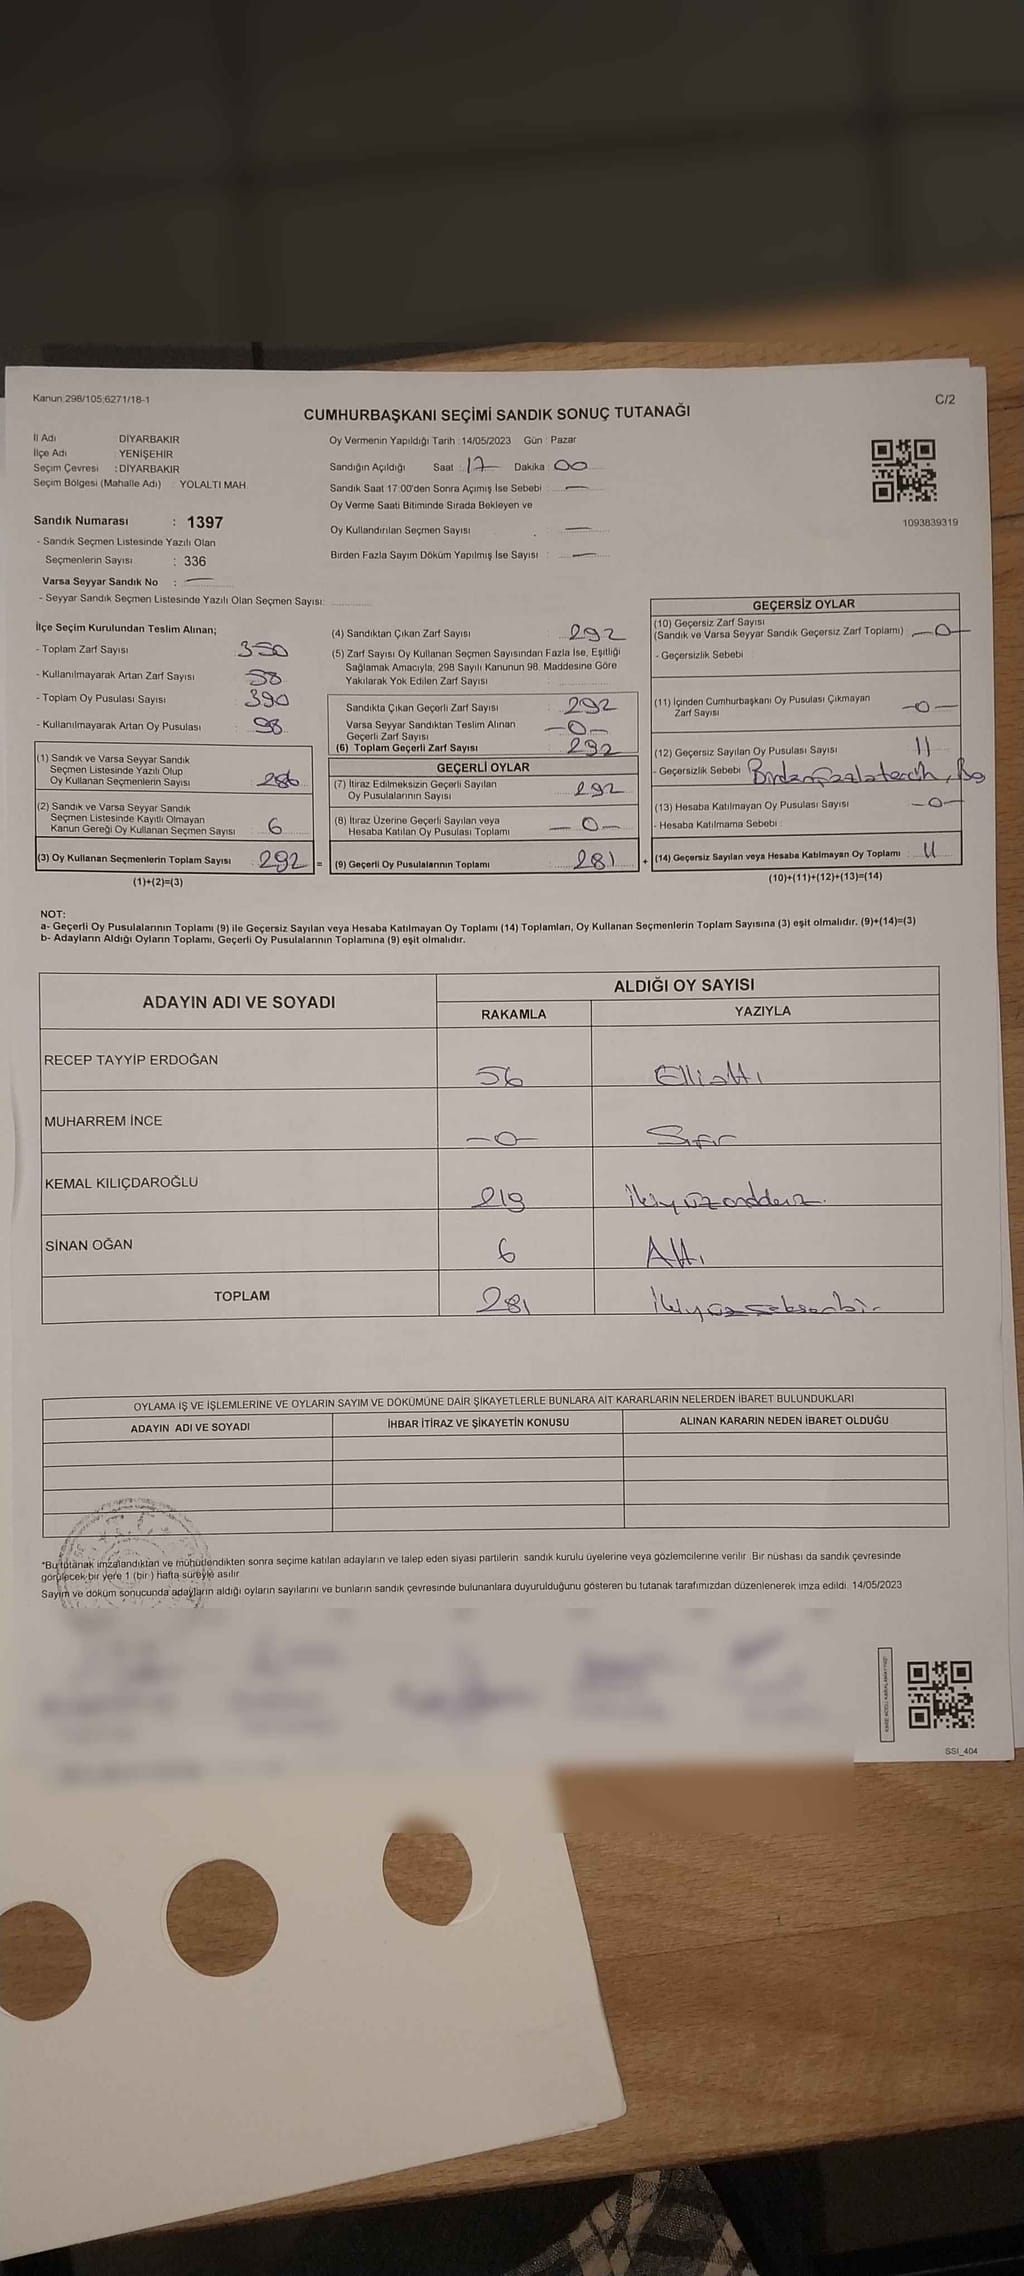 Kanun:298/105,6271/18-1
C/2
CUMHURBAŞKANI SEÇİMİ SANDIK SONUÇ TUTANAĞI
İl Adı : DİYARBAKIR
İlçe Adı : YENİŞEHİR
Seçim Çevresi : DİYARBAKIR
Seçim Bölgesi (Mahalle Adı) : YOLALTI MAH.
Sandık Numarası : 1397
- Sandık Seçmen Listesinde Yazılı Olan
Seçmenlerin Sayısı : 336
Varsa Seyyar Sandık No : —
- Seyyar Sandık Seçmen Listesinde Yazılı Olan Seçmen Sayısı:
Oy Vermenin Yapıldığı Tarih :14/05/2023 Gün : Pazar
Sandığın Açıldığı Saat : 17 Dakika : 00
Sandık Saat 17:00'den Sonra Açımış İse Sebebi : —
Oy Verme Saati Bitiminde Sırada Bekleyen ve
Oy Kullandırılan Seçmen Sayısı : —
Birden Fazla Sayım Döküm Yapılmış İse Sayısı : —
1093839319
İlçe Seçim Kurulundan Teslim Alınan;
- Toplam Zarf Sayısı : 350
- Kullanılmayarak Artan Zarf Sayısı : 58
- Toplam Oy Pusulası Sayısı : 390
- Kullanılmayarak Artan Oy Pusulası : 98
(1) Sandık ve Varsa Seyyar Sandık
Seçmen Listesinde Yazılı Olup
Oy Kullanan Seçmenlerin Sayısı : 286
(2) Sandık ve Varsa Seyyar Sandık
Seçmen Listesinde Kayıtlı Olmayan
Kanun Gereği Oy Kullanan Seçmen Sayısı : 6
(3) Oy Kullanan Seçmenlerin Toplam Sayısı : 292 =
(1)+(2)=(3)
(4) Sandıktan Çıkan Zarf Sayısı : 292
(5) Zarf Sayısı Oy Kullanan Seçmen Sayısından Fazla İse, Eşitliği
Sağlamak Amacıyla, 298 Sayılı Kanunun 98. Maddesine Göre
Yakılarak Yok Edilen Zarf Sayısı :
Sandıkta Çıkan Geçerli Zarf Sayısı : 292
Varsa Seyyar Sandıktan Teslim Alınan
Geçerli Zarf Sayısı : —0—
(6) Toplam Geçerli Zarf Sayısı : 292
GEÇERLİ OYLAR
(7) İtiraz Edilmeksizin Geçerli Sayılan
Oy Pusulalarının Sayısı : 292
(8) İtiraz Üzerine Geçerli Sayılan veya
Hesaba Katılan Oy Pusulası Toplamı : —0—
(9) Geçerli Oy Pusulalarının Toplamı : 281 +
GEÇERSİZ OYLAR
(10) Geçersiz Zarf Sayısı
(Sandık ve Varsa Seyyar Sandık Geçersiz Zarf Toplamı) : —0—
- Geçersizlik Sebebi :
(11) İçinden Cumhurbaşkanı Oy Pusulası Çıkmayan
Zarf Sayısı : —0—
(12) Geçersiz Sayılan Oy Pusulası Sayısı : 11
- Geçersizlik Sebebi : Birden fazla tercih, Boş
(13) Hesaba Katılmayan Oy Pusulası Sayısı : —0—
- Hesaba Katılmama Sebebi :
(14) Geçersiz Sayılan veya Hesaba Katılmayan Oy Toplamı : 11
(10)+(11)+(12)+(13)=(14)
NOT:
a- Geçerli Oy Pusulalarının Toplamı (9) ile Geçersiz Sayılan veya Hesaba Katılmayan Oy Toplamı (14) Toplamları, Oy Kullanan Seçmenlerin Toplam Sayısına (3) eşit olmalıdır. (9)+(14)=(3)
b- Adayların Aldığı Oyların Toplamı, Geçerli Oy Pusulalarının Toplamına (9) eşit olmalıdır.
ADAYIN ADI VE SOYADI
ALDIĞI OY SAYISI
RAKAMLA YAZIYLA
RECEP TAYYİP ERDOĞAN 56 Elli altı
MUHARREM İNCE —0— Sıfır
KEMAL KILIÇDAROĞLU 219 ikiyüzondokuz
SİNAN OĞAN 6 Altı
TOPLAM 281 ikiyüzseksenbir
OYLAMA İŞ VE İŞLEMLERİNE VE OYLARIN SAYIM VE DÖKÜMÜNE DAİR ŞİKAYETLERLE BUNLARA AİT KARARLARIN NELERDEN İBARET BULUNDUKLARI
ADAYIN ADI VE SOYADI İHBAR İTİRAZ VE ŞİKAYETİN KONUSU ALINAN KARARIN NEDEN İBARET OLDUĞU
*Bu tutanak imzalandıktan ve mühürlendikten sonra seçime katılan adayların ve talep eden siyasi partilerin sandık kurulu üyelerine veya gözlemcilerine verilir. Bir nüshası da sandık çevresinde
görülecek bir yere 1 (bir) hafta süreyle asılır.
Sayım ve döküm sonucunda adayların aldığı oyların sayılarını ve bunların sandık çevresinde bulunanlara duyurulduğunu gösteren bu tutanak tarafımızdan düzenlenerek imza edildi. 14/05/2023
SSI_404